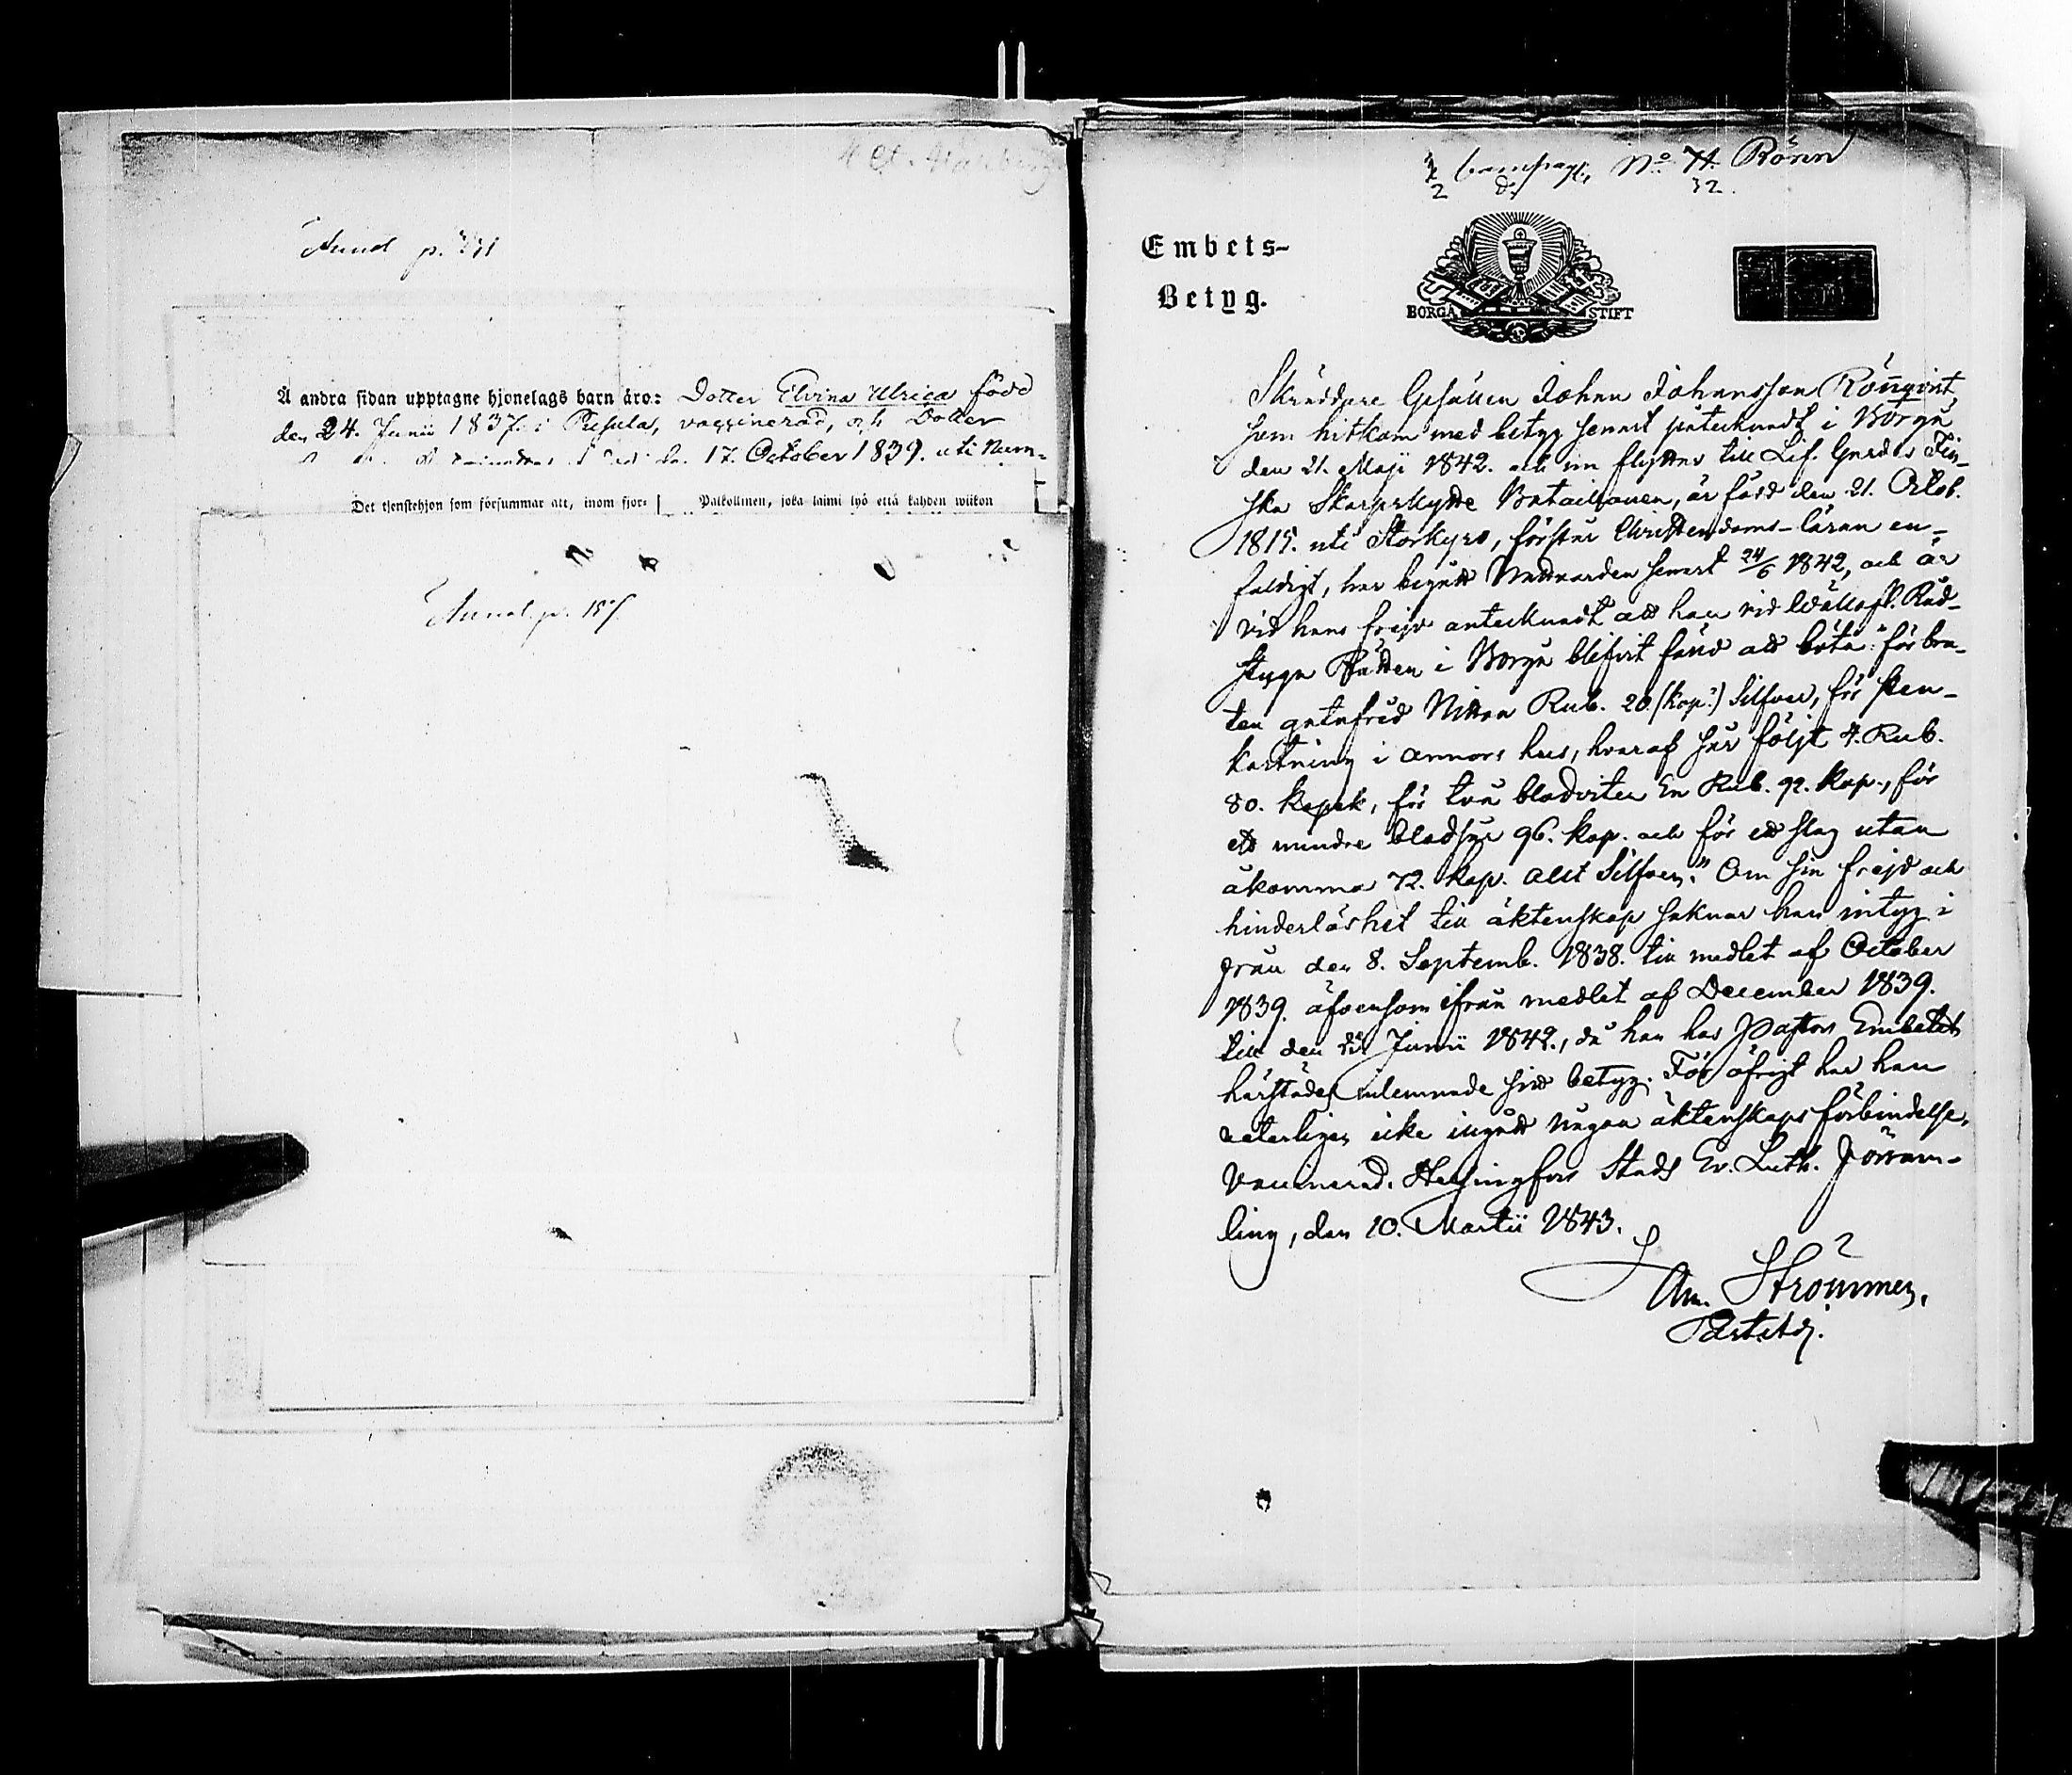 Annot p.
Å andra sidan upptagne hjonelags barn äro: Dotter Elvina Ulrica född
den 24. Junii 1837. i Pusula, vaccinerad, och Dotter
17. October 1839. uti Num-
Det tjenstehjon som försummar att, inom fjor- Palkollinen, joka laimi lyö että kahden wiikon
Annot. p. 157.
2 Compagn. No 71. Rönn
32.
Embets-
Betyg.
BORGÅ STIFT
Skräddare Gesällen Johan Johansson Rönnqvist,
som hitkom med betyg senast påtecknadt i Borgå
den 21. Maji 1842. och nu flyttar till Lif-Gardes Fin-
ska Skarpskytte Bataillonen, är född den 21. Octob.
1815. uti Storkyro, förstår Christendoms-läran en-
faldigt, har begått Nattvarden senast 24/6 1842, och är
vid hans frejd antecknadt att han vid Wällofl. Råd-
stugu Rätten i Borgå blifvit fälld att böta "för bru-
ten gatufrid Nitton Rub. 20 (kop.) Silfver, för
i annors hus, hvaraf sår följt 4. Rub.
80. kopek, för två blodviten En Rub. 92. kop., för
ett mindre blodsår 96. kop. och för ett slag utan
åkomma 72. kop. allt Silfver." Om sin frejd och
hinderlöshet till äktenskap saknar han intyg i-
från den 8. Septemb. 1838. till medlet af October
1839. äfvensom ifrån medlet af December 1839.
till den Junii 1842., då han hos Pastors Embetet
härstädes inlemnade sitt betyg. För öfrigt har han
veterligen icke ingått någon äktenskaps förbindelse.
Vaccinerad. Helsingfors Stads Ev. Luth. Församl-
ling, den 10. Martii 1843.
Strömmer,